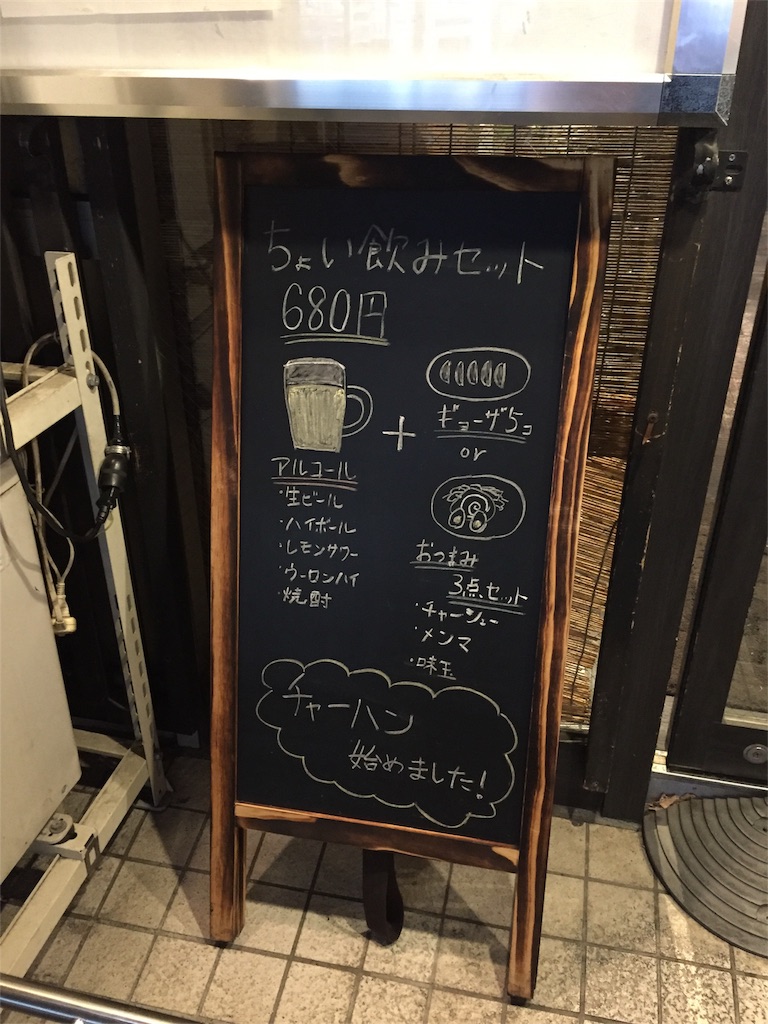 ちょい飲みセット
680円
+
ギョーザ5コ
or
アルコール
・生ビール
・ハイボール
・レモンサワー
・ウーロンハイ
・焼酎
おつまみ
3点セット
・チャーシュー
・メンマ
・味玉
チャーハン
始めました!